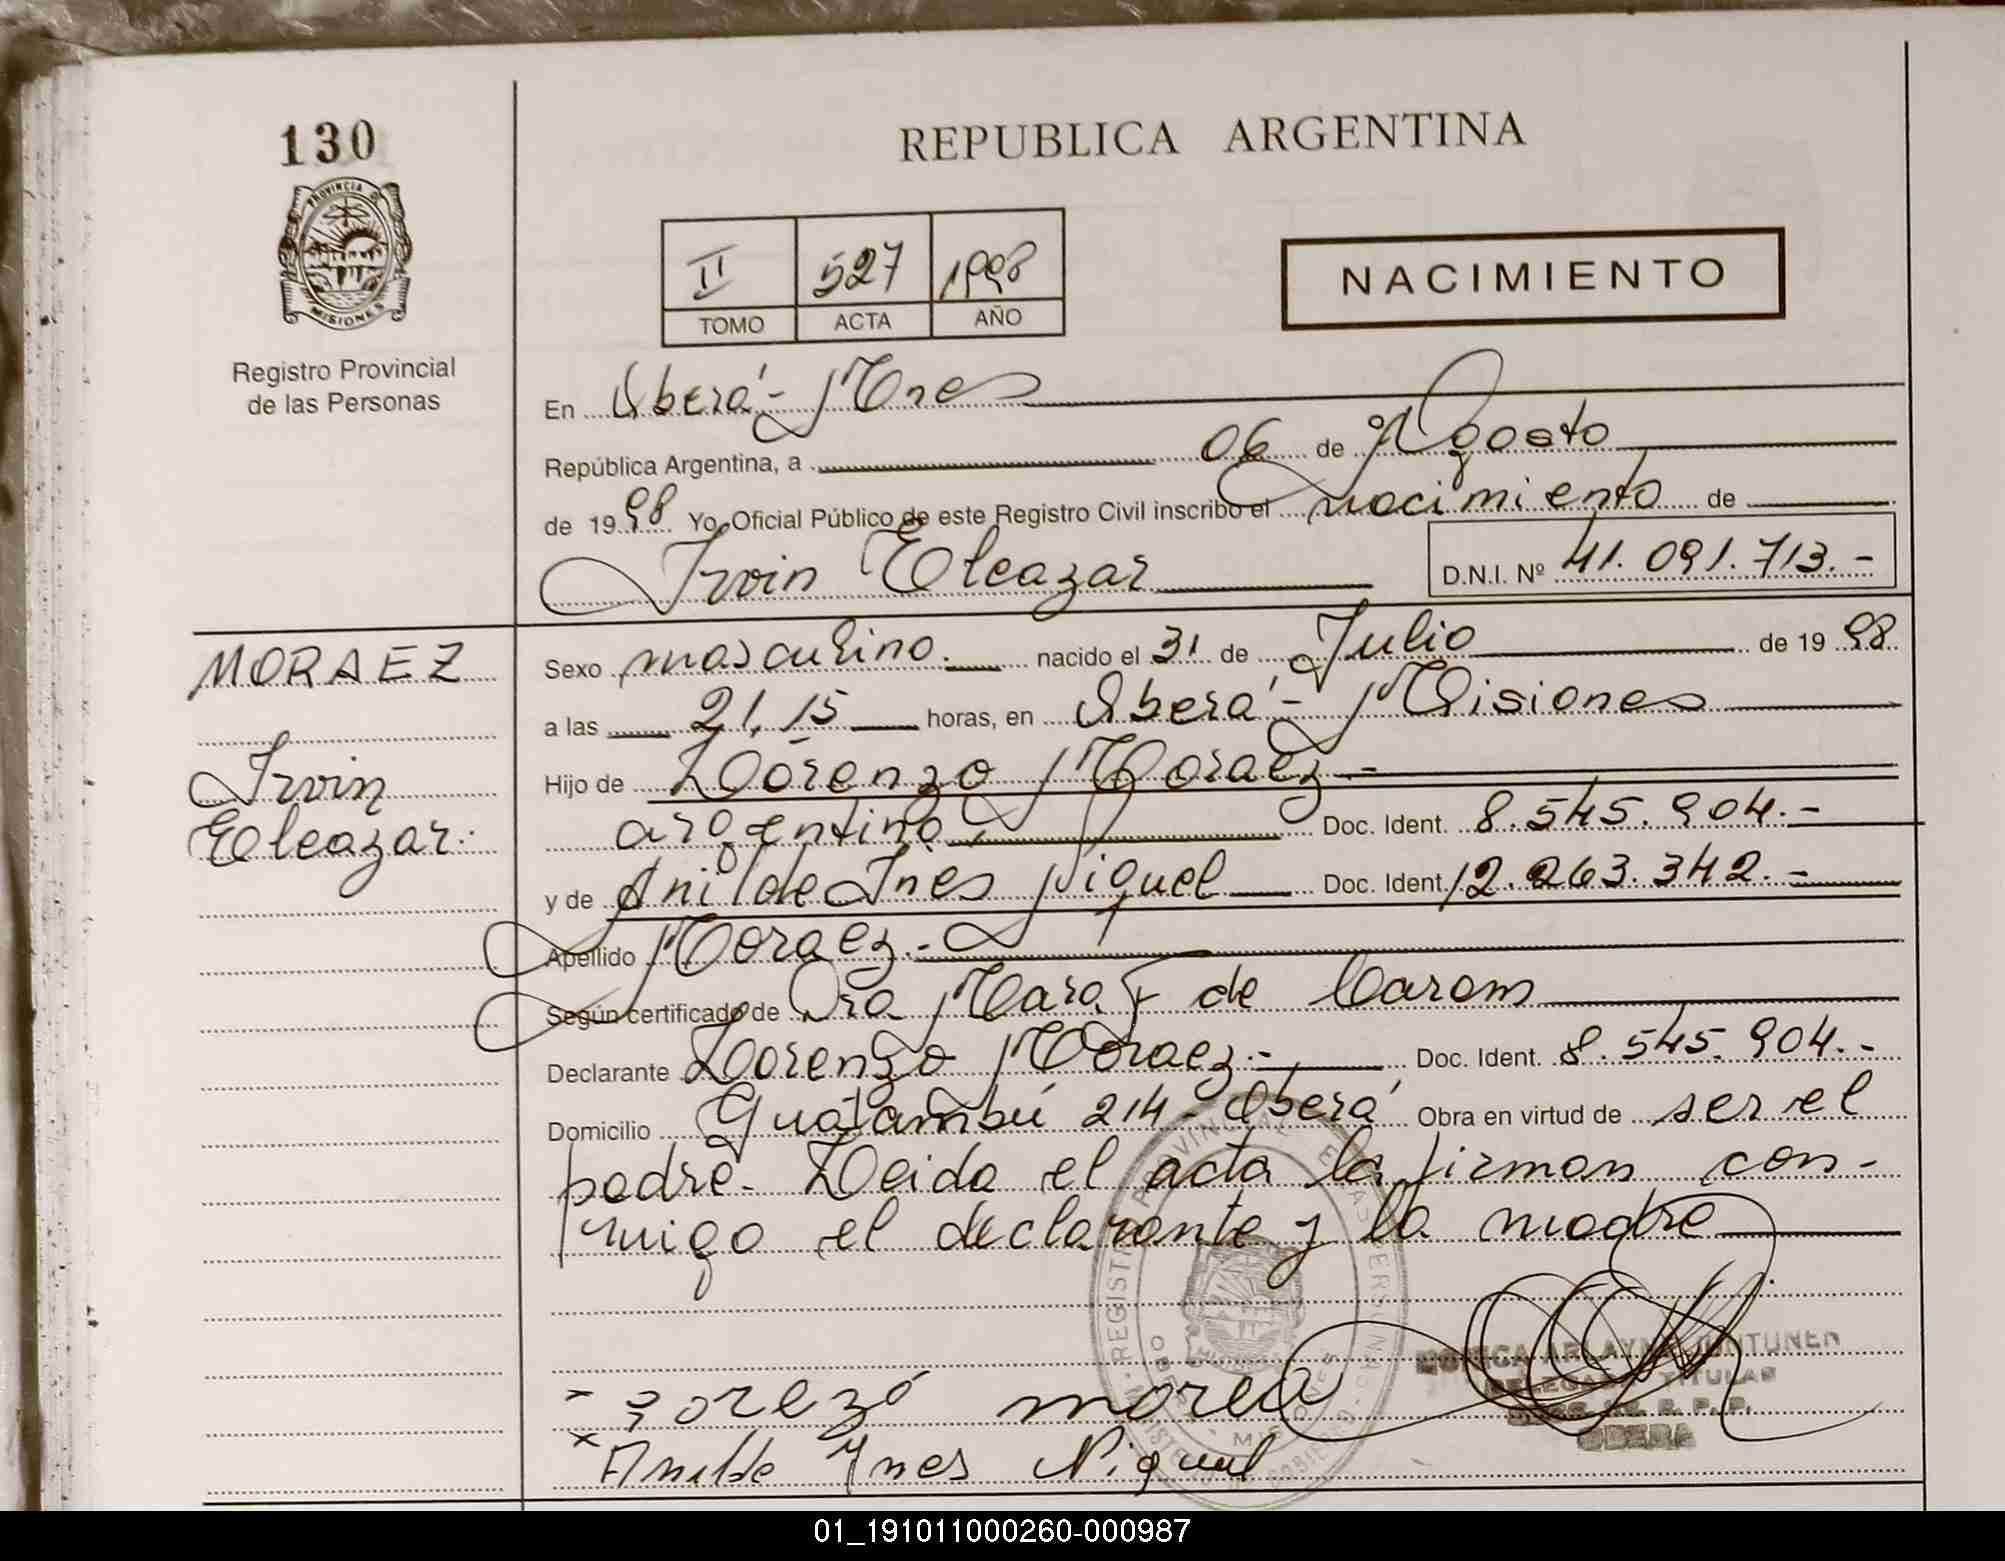 130
PROVINCIA DE
MISIONES
Registro Provincial
de las Personas
REPUBLICA ARGENTINA
II 527 1998
TOMO ACTA AÑO
NACIMIENTO
En Oberá - Mnes
República Argentina, a 06 de Agosto
de 1998 Yo, Oficial Público de este Registro Civil inscribo el nacimiento de
Irvin Eleazar D.N.I. Nº 41.091.713.-
MORAEZ
Irvin
Eleazar.
Sexo masculino. nacido el 31 de Julio de 1998
a las 21,15 horas, en Oberá - Misiones
Hijo de Lorenzo Moraez -
argentino, Doc. Ident. 8.545.904.-
y de Anilde Inés Niquel Doc. Ident. 12.263.342.-
Apellido Moraez.-
Según certificado de Dra Mara F de
Declarante Lorenzo Moraez.- Doc. Ident. 8.545.904.-
Domicilio Guatambú 214 - Oberá Obra en virtud de ser el
padre. Leida el acta la firman con-
migo el declarante y la madre
REGISTRO PROVINCIAL DE LAS PERSONAS
TITULAR
R. P. P.
OBERA
Anilde Ines Niquel
01_191011000260-000987